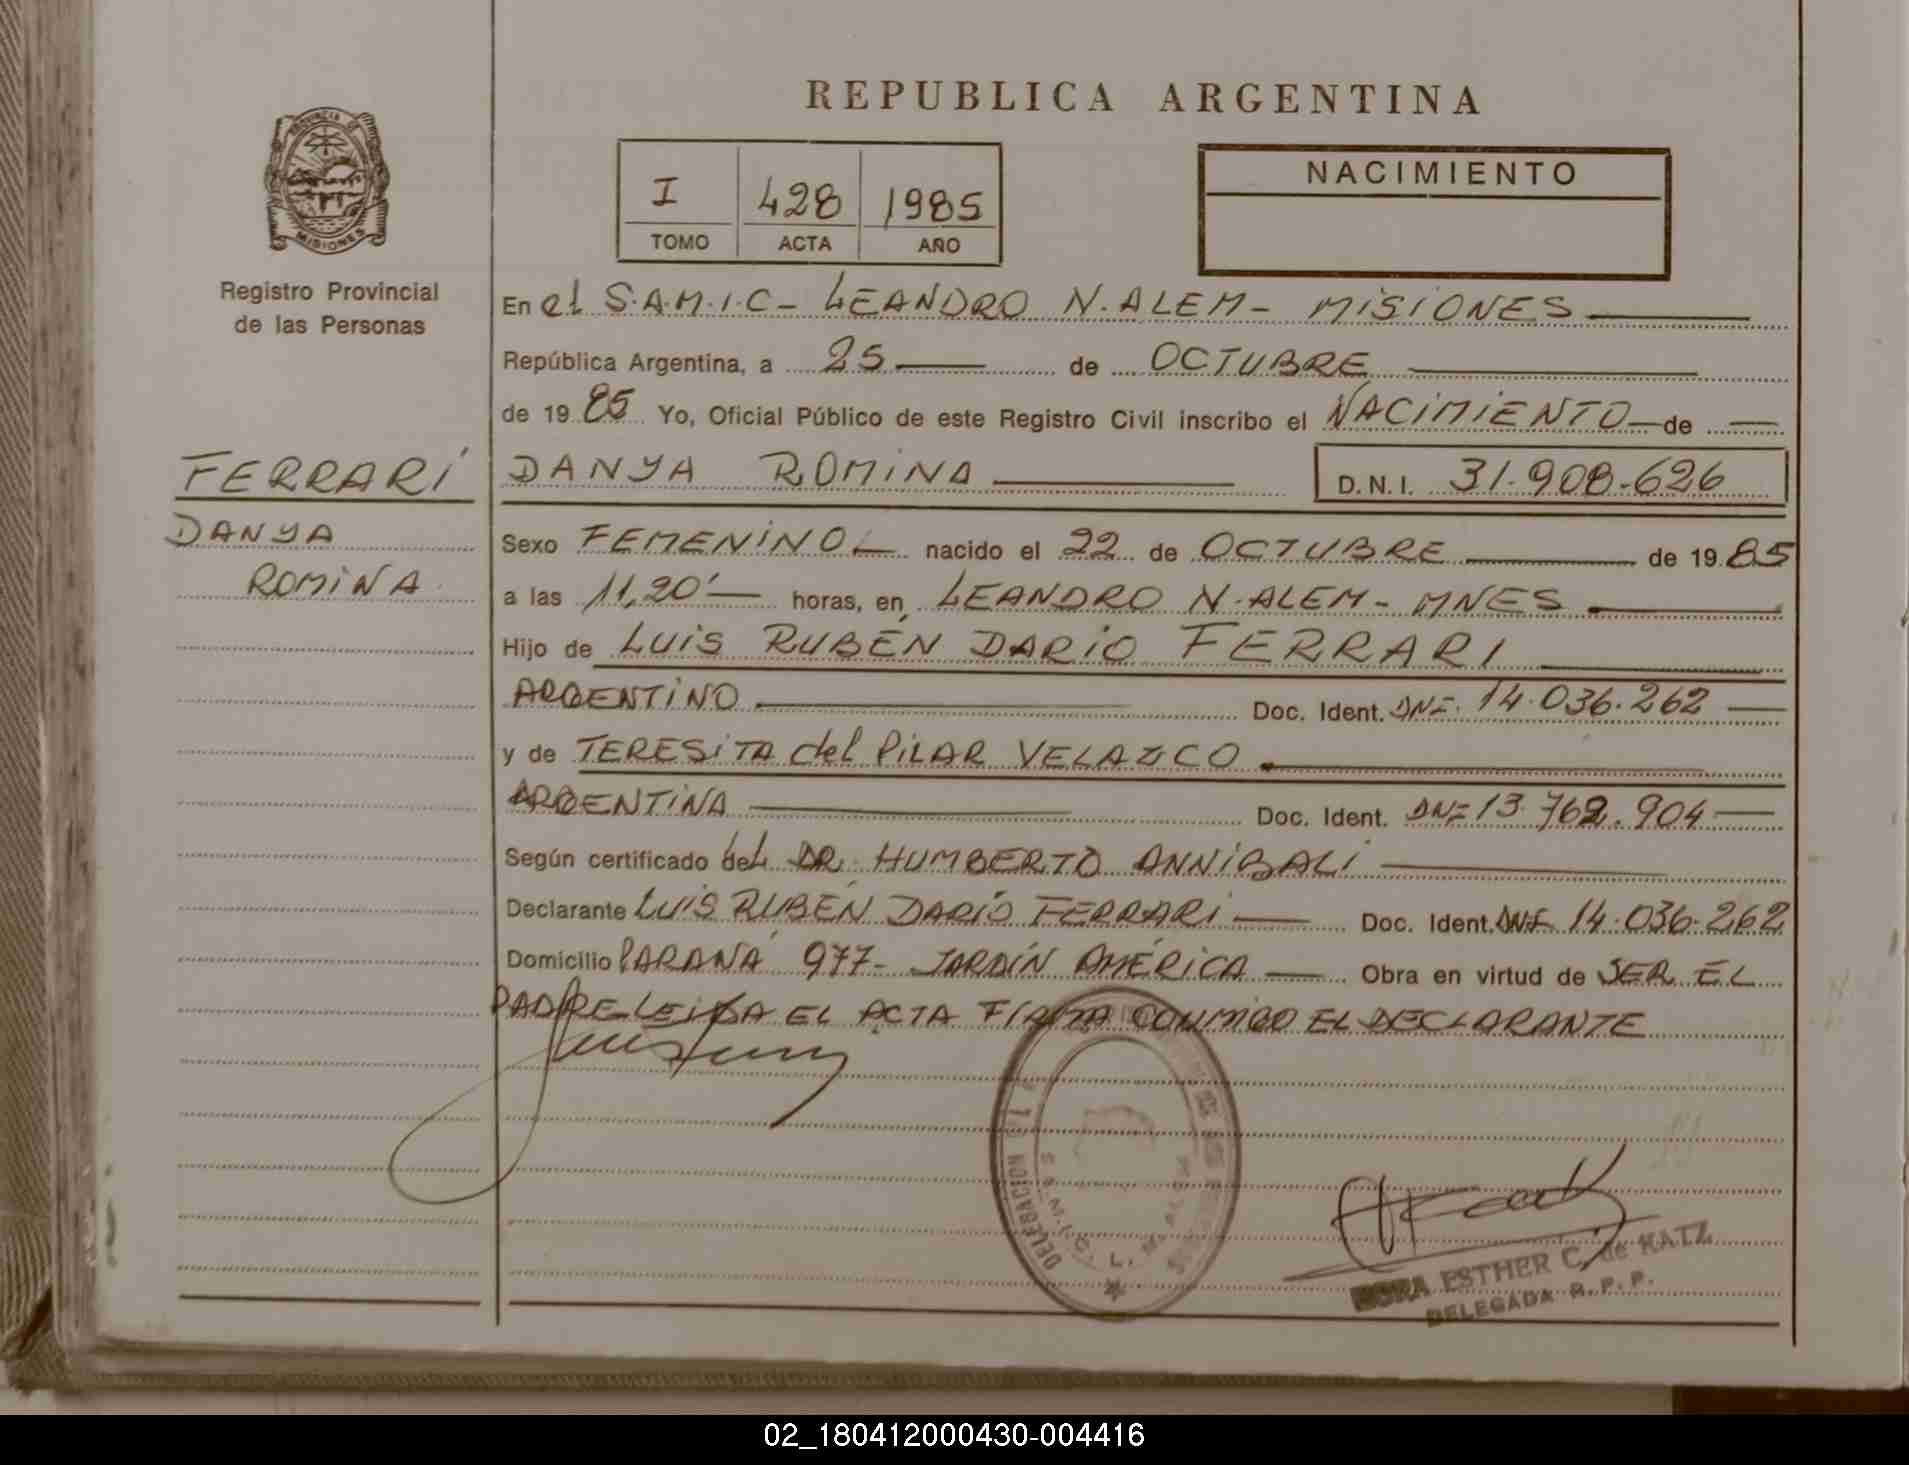 REPUBLICA ARGENTINA
PROVINCIA DE
MISIONES
Registro Provincial
de las Personas
I 428 1985
TOMO ACTA AÑO
NACIMIENTO
En el S.A.M.I.C - LEANDRO N. ALEM - MISIONES
República Argentina, a 25 de OCTUBRE
de 1985 Yo, Oficial Público de este Registro Civil inscribo el NACIMIENTO de
FERRARI
DANYA
ROMINA
DANYA ROMINA D.N.I. 31.908.626
Sexo FEMENINO nacido el 22 de OCTUBRE de 1985
a las 11,20' horas, en LEANDRO N. ALEM - MNES
Hijo de LUIS RUBÉN DARIO FERRARI
ARGENTINO Doc. Ident. DNI. 14.036.262
y de TERESITA del PILAR VELAZCO
ARGENTINA Doc. Ident. DNI 13.762.904
Según certificado del DR. HUMBERTO ANNIBALI
Declarante LUIS RUBÉN DARIO FERRARI Doc. Ident. DNI 14.036.262
Domicilio PARANÁ 977 - JARDÍN AMÉRICA Obra en virtud de SER EL
PADRE LEIDA EL ACTA FIRMA CONMIGO EL DECLARANTE
DELEGACION
S.A.M.I.C. L. N. ALEM
ESTHER C. de KATZ
DELEGADA R.P.P.
02_180412000430-004416